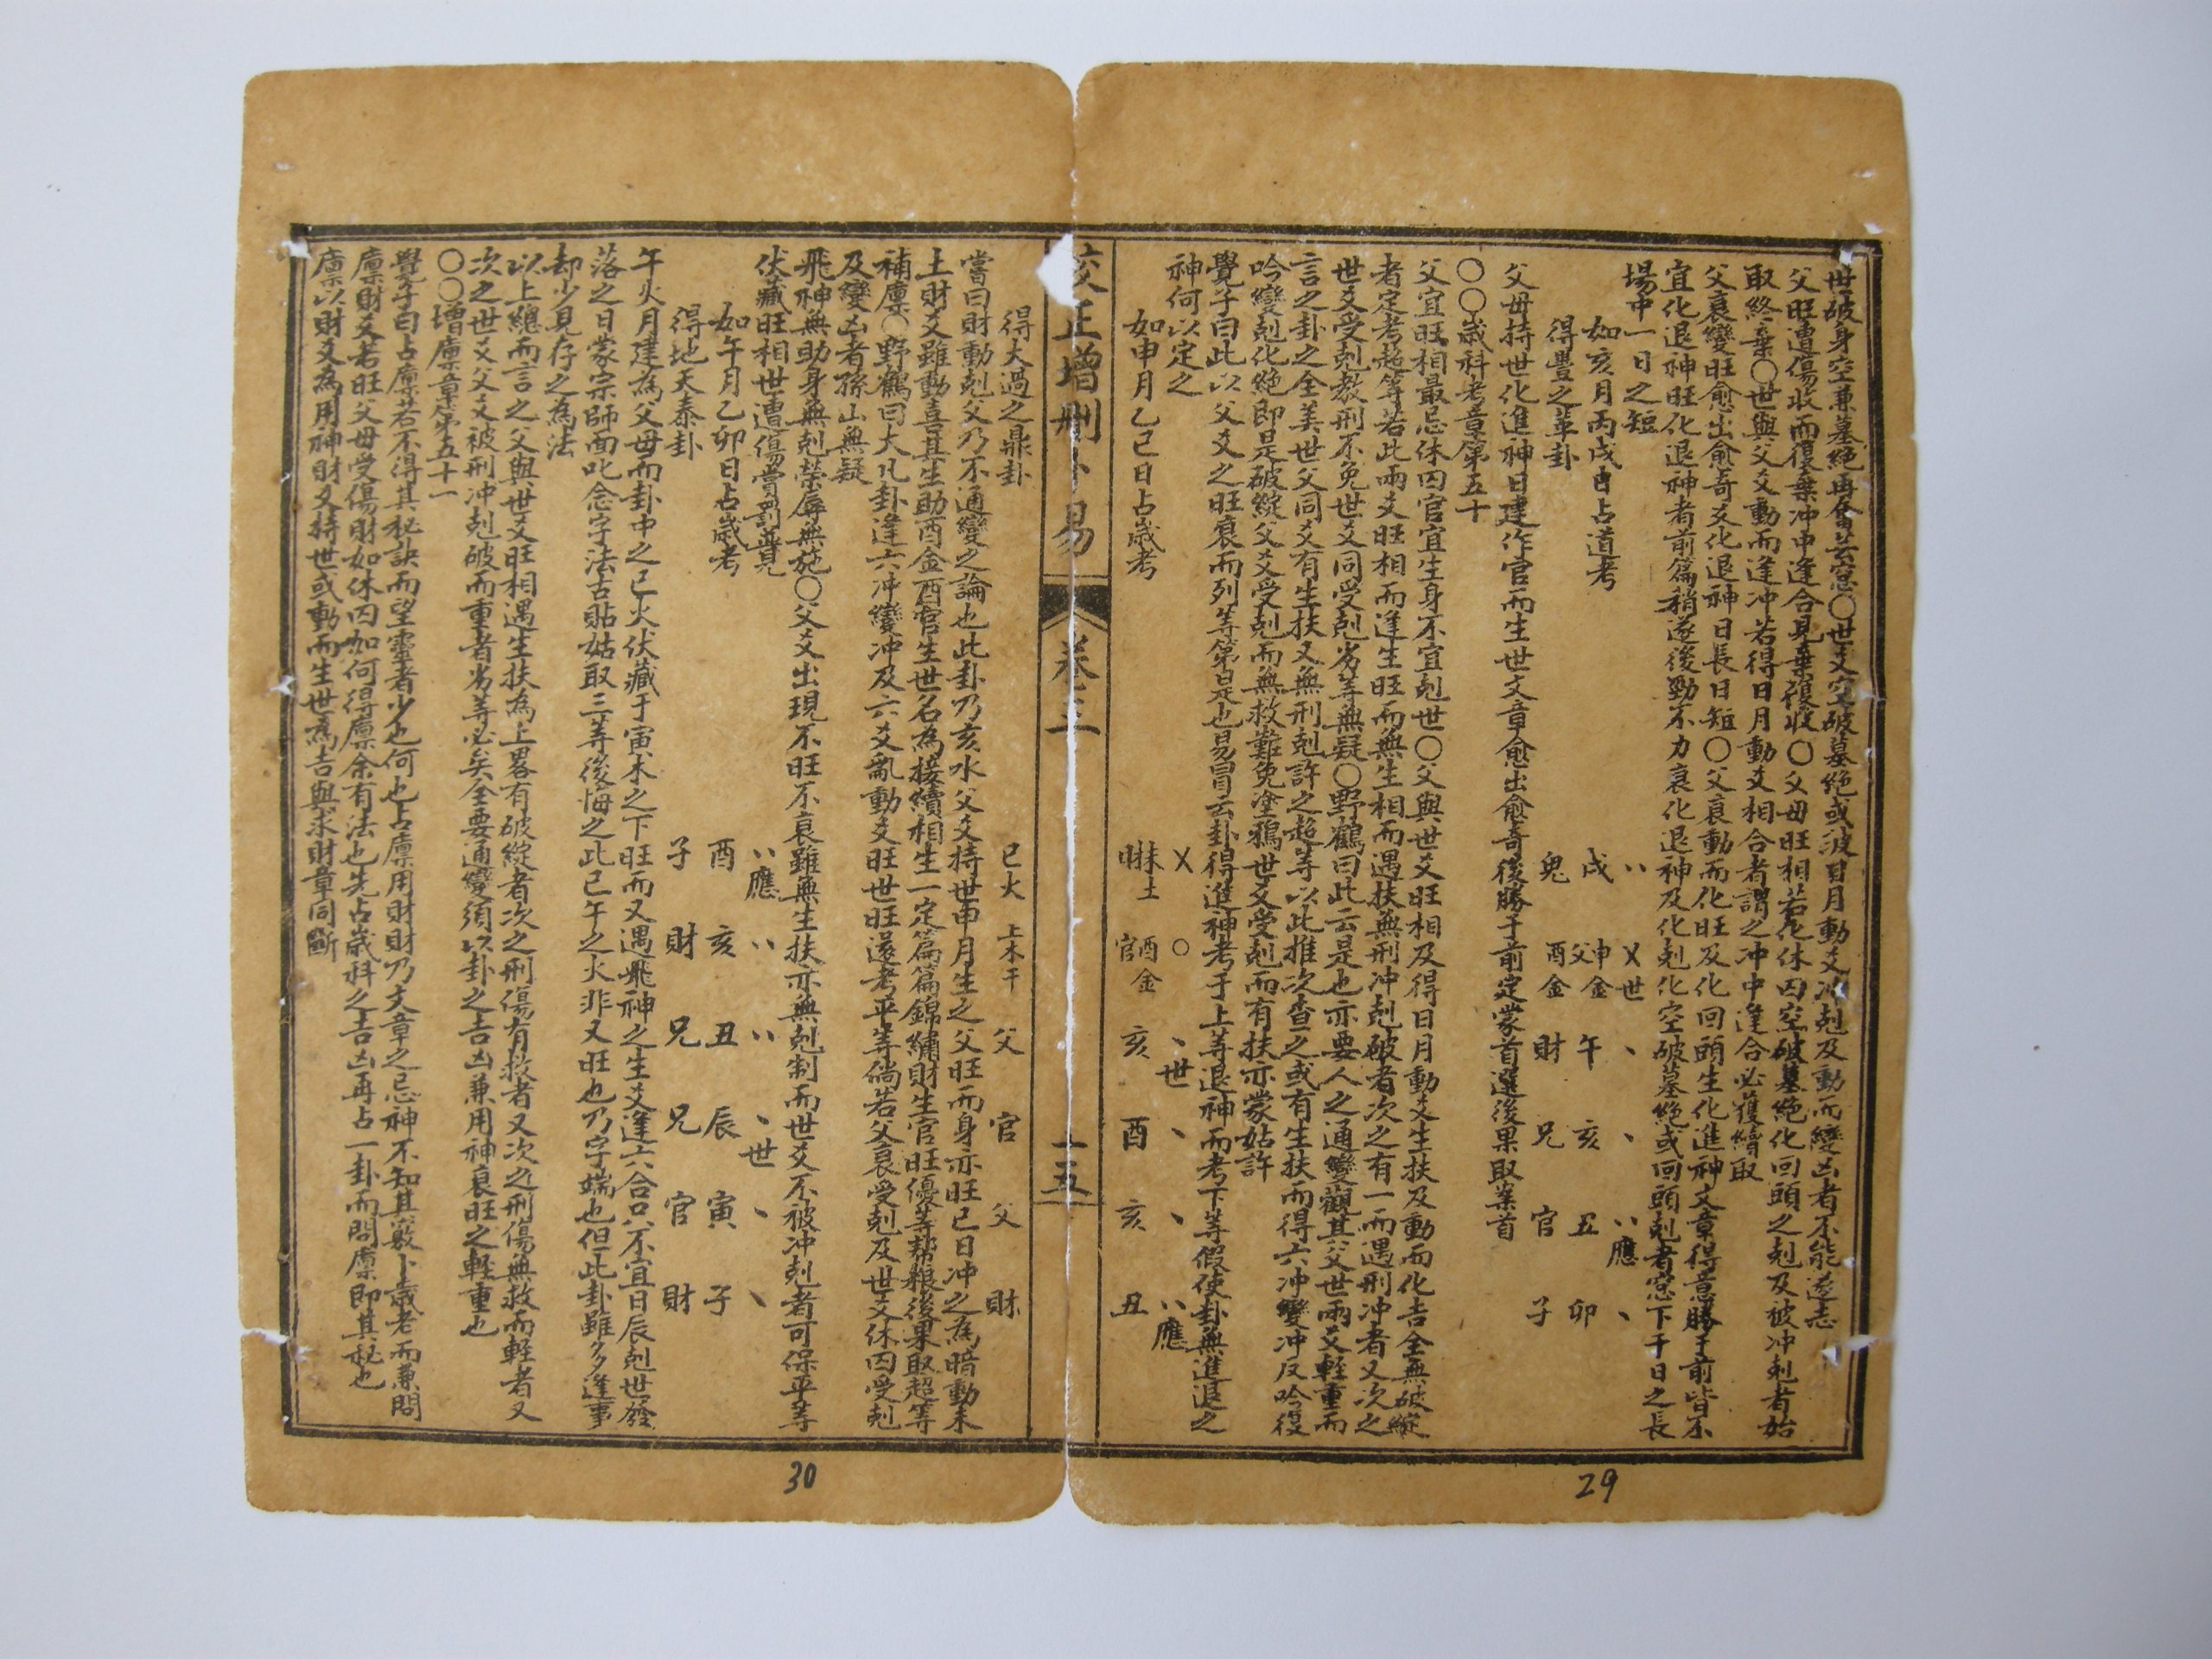 世破身空兼墓絕再會芸窓○世爻空破墓絕或被日月動爻冲剋及動而變凶者不能遂志
父旺遭傷收而復棄冲中逢合見棄復收○父母旺相若化休囚空破墓絕化回頭之剋及被冲剋者始
取終棄○世與父爻動而逢冲若得日月動爻相合者謂之冲中逢合必獲續取
父衰變旺愈出愈奇爻化退神日長日短○父衰動而化旺及化回頭生化進神文章得意勝于前皆不
宜化退神旺化退神者前篇稍遂後勁不力衰化退神及化剋化空破墓絕或回頭剋者窓下千日之長
場中一日之短
如亥月丙戌日占道考
得豐之革卦
〃 乂世 、 、 〃應 、
戌 父申金 午 亥 丑 卯
鬼 酉金 財 兄 官 子
父母持世化進神日建作官而生世文章愈出愈奇後勝于前定蒙首選後果取案首
○○歲科考章第五十
父宜旺相最忌休囚官宜生身不宜剋世○父與世爻旺相及得日月動爻生扶及動而化吉全無破綻
者定考超等若此兩爻旺相而逢生旺而無生相而遇扶無刑冲剋破者次之有一而遇刑冲者又次之
世爻受剋敎刑不免世爻同受剋劣等無疑○野鶴曰此云是也亦要人之通變觀其父世兩爻輕重而
言之卦之全美世父同爻有生扶又無刑剋許之超等以此推次查之或有生扶而得六冲變冲反吟復
吟變剋化絕即是破綻父爻受剋而無救難免塗鴉世爻受剋而有扶亦蒙姑許
覺子曰此以父爻之旺衰而列等第是也易冒云卦得進神考于上等退神而考下等假使卦無進退之
神何以定之
如申月乙巳日占歲考
乂 ○ 、世 、 、 〃應
財未土 官酉金 亥 酉 亥 丑
校正增刪卜易 卷三 二五
得大過之鼎卦
巳火 父 官 父 財
嘗曰財動剋父乃不通變之論也此卦乃亥水父爻持世申月生之父旺而身亦旺巳日冲之為暗動未
土財爻雖動喜其生助酉金酉官生世名為接續相生一定篇篇錦繡財生官旺優等幇糧後果取超等
補廪○野鶴曰大凡卦逢六冲變冲及六爻亂動爻旺世旺還考平等倘若父衰受剋及世爻休囚受剋
及變凶者孫山無疑
飛神無助身無剋榮辱無施○父爻出現不旺不衰雖無生扶亦無剋制而世爻不被冲剋者可保平等
伏藏旺相世遭傷賞罰並見
如午月乙卯日占歲考
得地天泰卦
〃應 〃 〃 、世 、 、
酉 亥 丑 辰 寅 子
子 財 兄 兄 官 財
午火月建為父母而卦中之巳火伏藏于寅木之下旺而又遇飛神之生爻逢六合只不宜日辰剋世發
落之日蒙宗師面叱念字法古貼姑取三等後悔之此巳午之火非又旺也乃字端也但此卦雖多逢事
却少見存之為法
以上總而言之父與世爻旺相遇生扶為上畧有破綻者次之刑傷有救者又次之刑傷無救而輕者又
次之世爻父爻被刑冲剋破而重者劣等必矣全要通變須以卦之吉凶兼用神衰旺之輕重也
○○增廪章第五十一
覺子曰占廪若不得其秘訣而望靈者少也何也占廪用財財乃文章之忌神不知其竅卜歲考而兼問
廪財爻若旺父母受傷財如休囚如何得廪余有法也先占歲科之吉凶再占一卦而問廪即其秘也
廪以財爻為用神財爻持世或動而生世為吉與求財章同斷
30
29